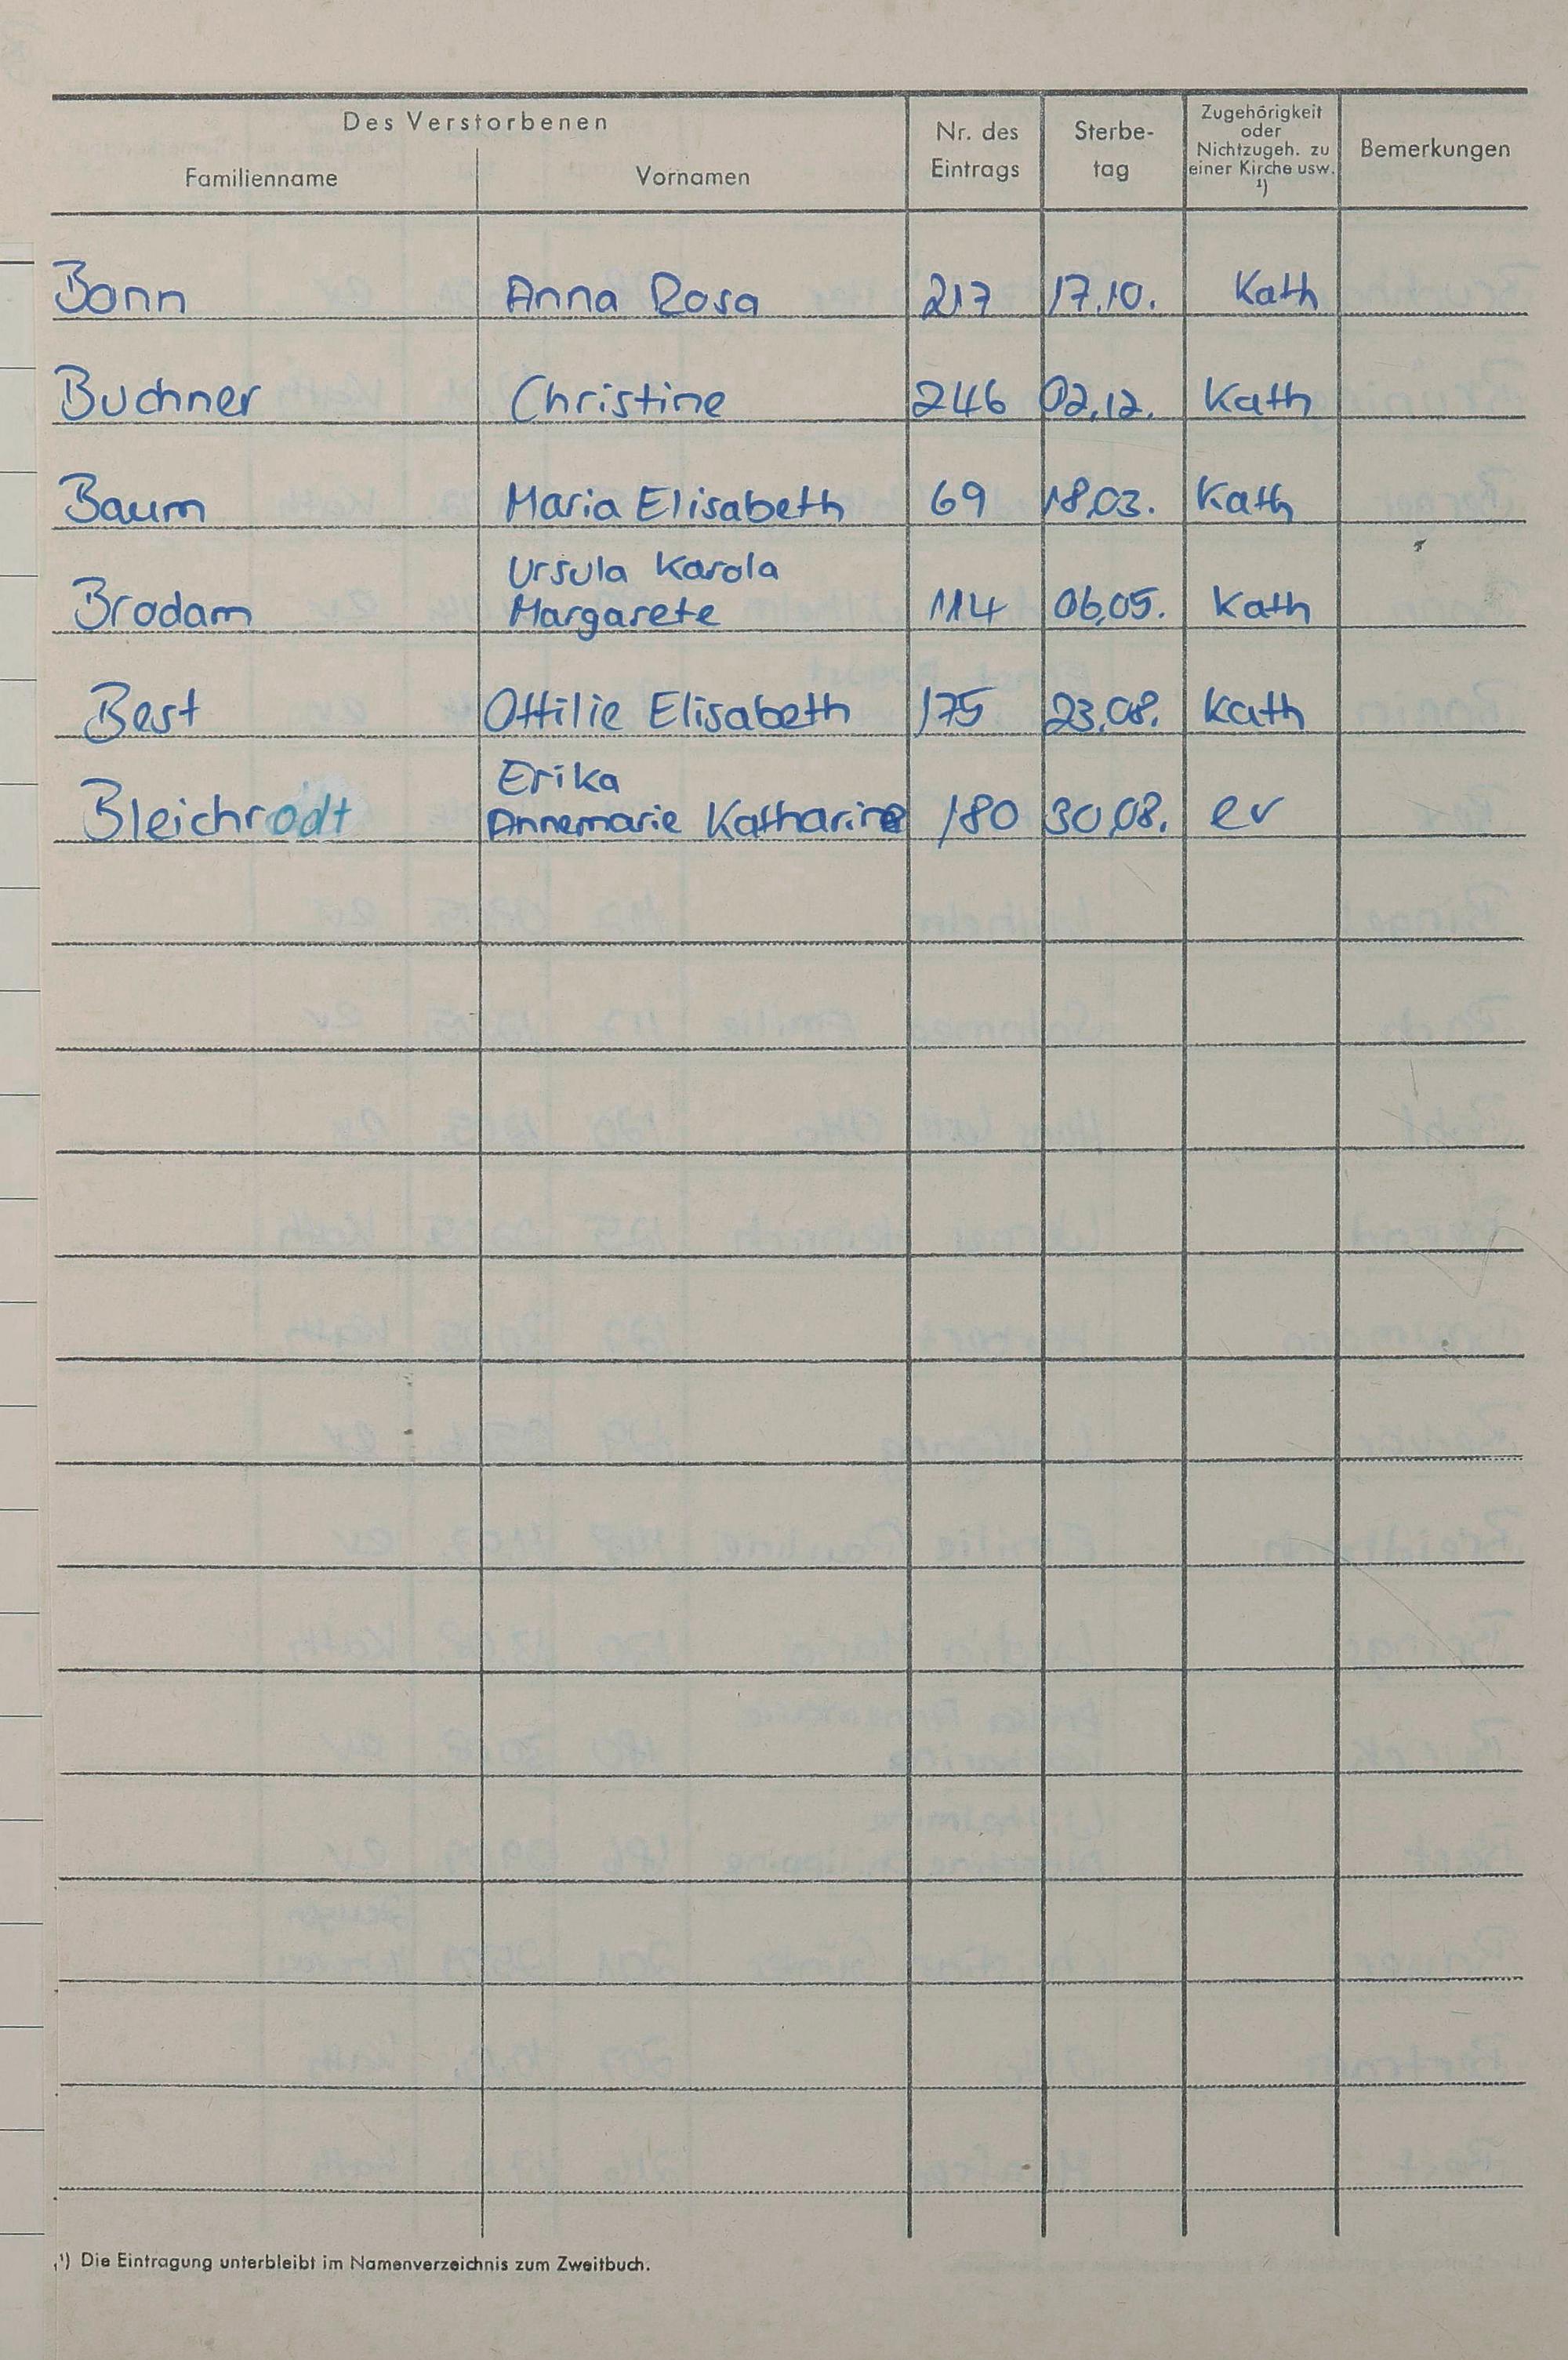 Des Verstorbenen
Familienname Vornamen Nr. des Eintrags Sterbe-tag Zugehörigkeit oder Nichtzugeh. zu einer Kirche usw. ¹) Bemerkungen
Bonn Anna Rosa 217 17.10. Kath
Buchner Christine 246 02.12. Kath
Baum Maria Elisabeth 69 18.03. Kath
Ursula Karola
Brodam Margarete 114 06.05. Kath
Best Ottilie Elisabeth 175 23.08. Kath
Erika
Bleichrodt Annemarie Katharine 180 30.08. ev
¹) Die Eintragung unterbleibt im Namenverzeichnis zum Zweitbuch.